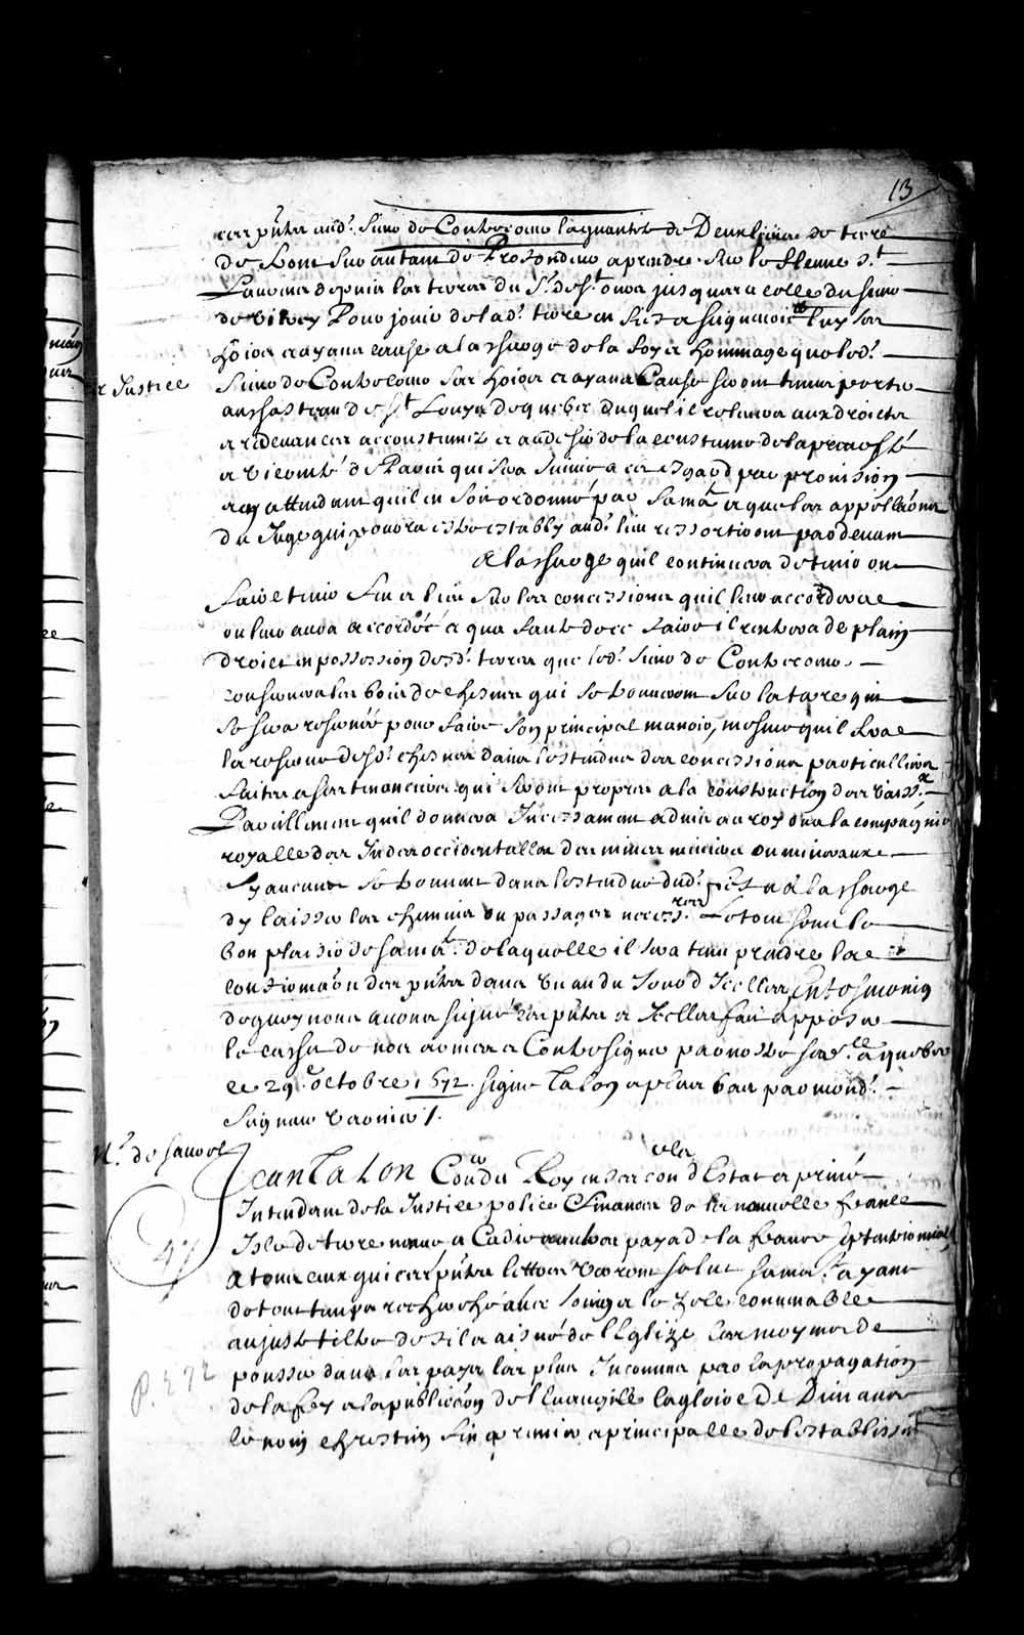 13
ces pñtes aud.t Sieur de Contrecoeur la quantité de Deux lieues de terre
de front sur autant de Profondeur a prendre sur le fleuve S.t
Laurens depuis les terres du Sr. de St. ours jusqua celles du sieur
de Pour jouir de lad. terre en fief et seigneurie luy ses
et Justice
hoirs et ayans cause a la charge de la foy et hommage que led.
Sieur de Contrecoeur ses hoirs et ayans Cause seront tenus porter
au chasteau de St Louys de quebec duquel il relevera aux droicts
et redevances accoustumez et au desir de la coustume de la prevosté
et vicomté de Paris qui sera suivie a cet esgard par provision
et en attendant quil en soit ordonné par sa ma.té et que les appellãons
du Juge qui poura estre estably aud. lieu ressortiront pardevant
a la charge quil continuera de tenir ou
faire tenir feu et lieu sur les concessions quil leur accordera
ou leur aura accordéé et qua faute de ce faire il rentrera de plain
droict en possession desd. terres que led. Sieur de Contrecoeur
conservera les bois de chesnes qui se trouveront sur la terre qui
se sera reservéé pour faire son principal manoir, mesme quil fera
la reserve desd. chesnes dans lestendue des concessions particullieres
faites a ses tenanciers qui seront propres a la construction des vaiss.x
Pareillement quil donnera Incessament advis au roy ou a la compagnie
royalle des Indes occidentalles des mines minieres ou mineraux
sy aucuns se trouvent dans lestendue dud. fief et a la charge
dy laisser les chemins ou passages necess.res Le tout soubs le
bon plaisir de sa ma.té de laquelle il sera tenu prendre la
confirmãon des pñtes dans un an du Jour d Icelles En tesmoing
dequoy nous avons signé ces pñtes et Icelles fait apposer
le cachet de nos armes et Contresigner par nostre secr.re a quebec
ce 29.e octobre 1672. signé Talon et plus bas par mond.
Seigneur varnier /.
M.r de saurel
Jean TaLon Con.er du Roy en ses con.els d Estat et privé
Intendant de la Justice police et finances de la nouvelle france
Isle de terre neuve a Cadie et autres pays de la france septentrionnale
A tous ceux qui ces pñtes lettres verront salut sa ma.té ayant
de tout temps recherché avec soing et le zele convenable
au juste tiltre de fils aisné de l Eglize les moyens de
pousser dans les pays les plus Inconnus par la propagation
de la foy et la publicãon de l Evangille la gloire De Dieu avec
le nom chrestien fin premiere et principalle de lestablissmt
47
P. 272